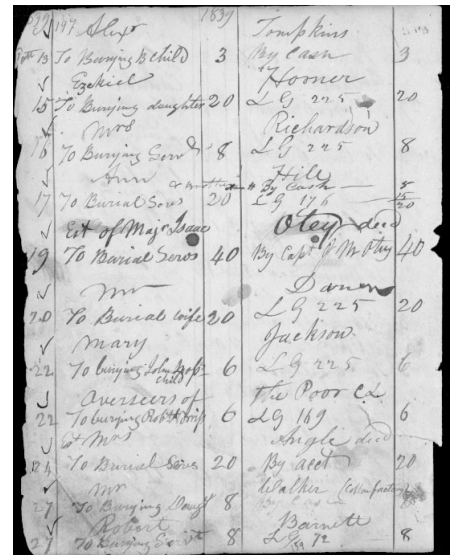 197 Alexr 1839 Tompkins
13 To Burying B child 3 By Cash 3
✓ Ezekiel Horner
15 To Burying daughter 20 L G 225 20
✓ Mrs Richardson
16 To Burying Servt 8 L G 225 8
✓ Ann Hill
By Cash 5
17 To Burial Sevs 20 L G 176 15
20
✓ Est of Majr Isaac Otey decd
19 To Burial Servs 40 By Capt J M Otey 40
✓ Mr
20 To Burial wife 20 L G 225 20
✓ Mary Jackson
22 To burying John 6 L G 225 6
child
✓ Overseers of the Poor
22 To burying Robt 6 L G 169 6
✓ Mrs Angle decd
24 To Burial Servs 20 By acct 20
✓ Mr Walker (Cotton factory)
27 To Burying Daugt 8
✓ Robert Barnett
27 To Burying Servt 8 L G 72 8